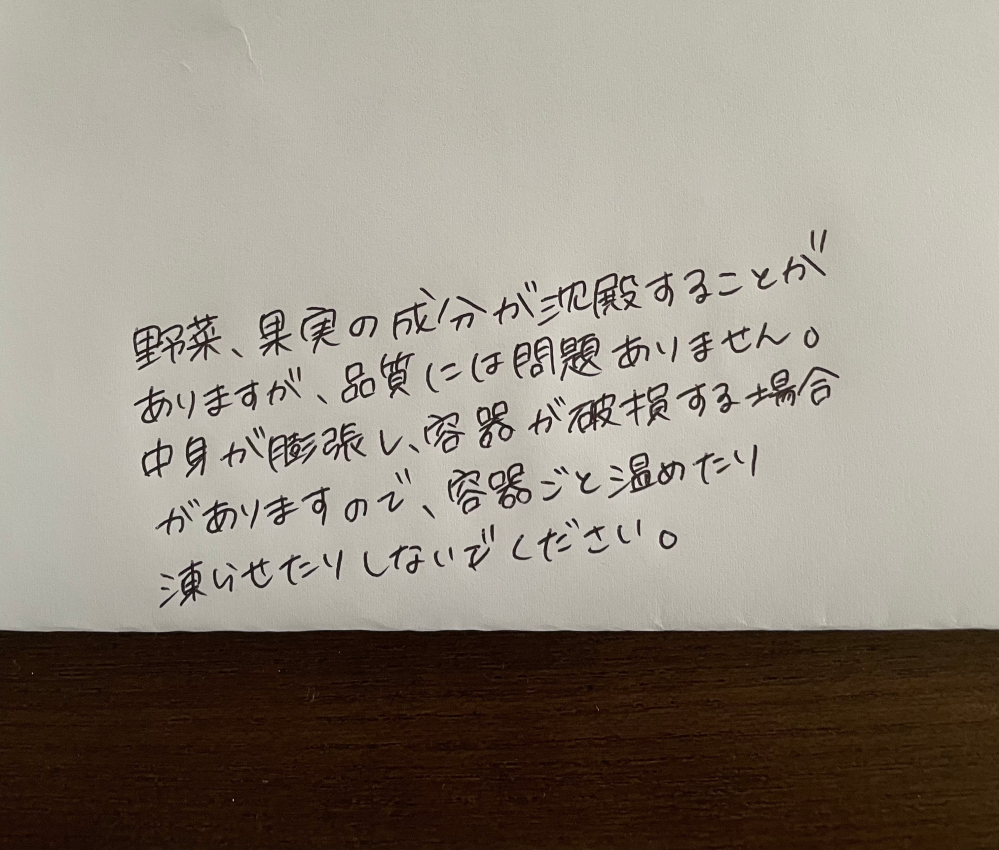 野菜、果実の成分が沈殿することが
ありますが、品質には問題ありません。
中身が膨張し、容器が破損する場合
がありますので、容器ごと温めたり
凍らせたりしないでください。